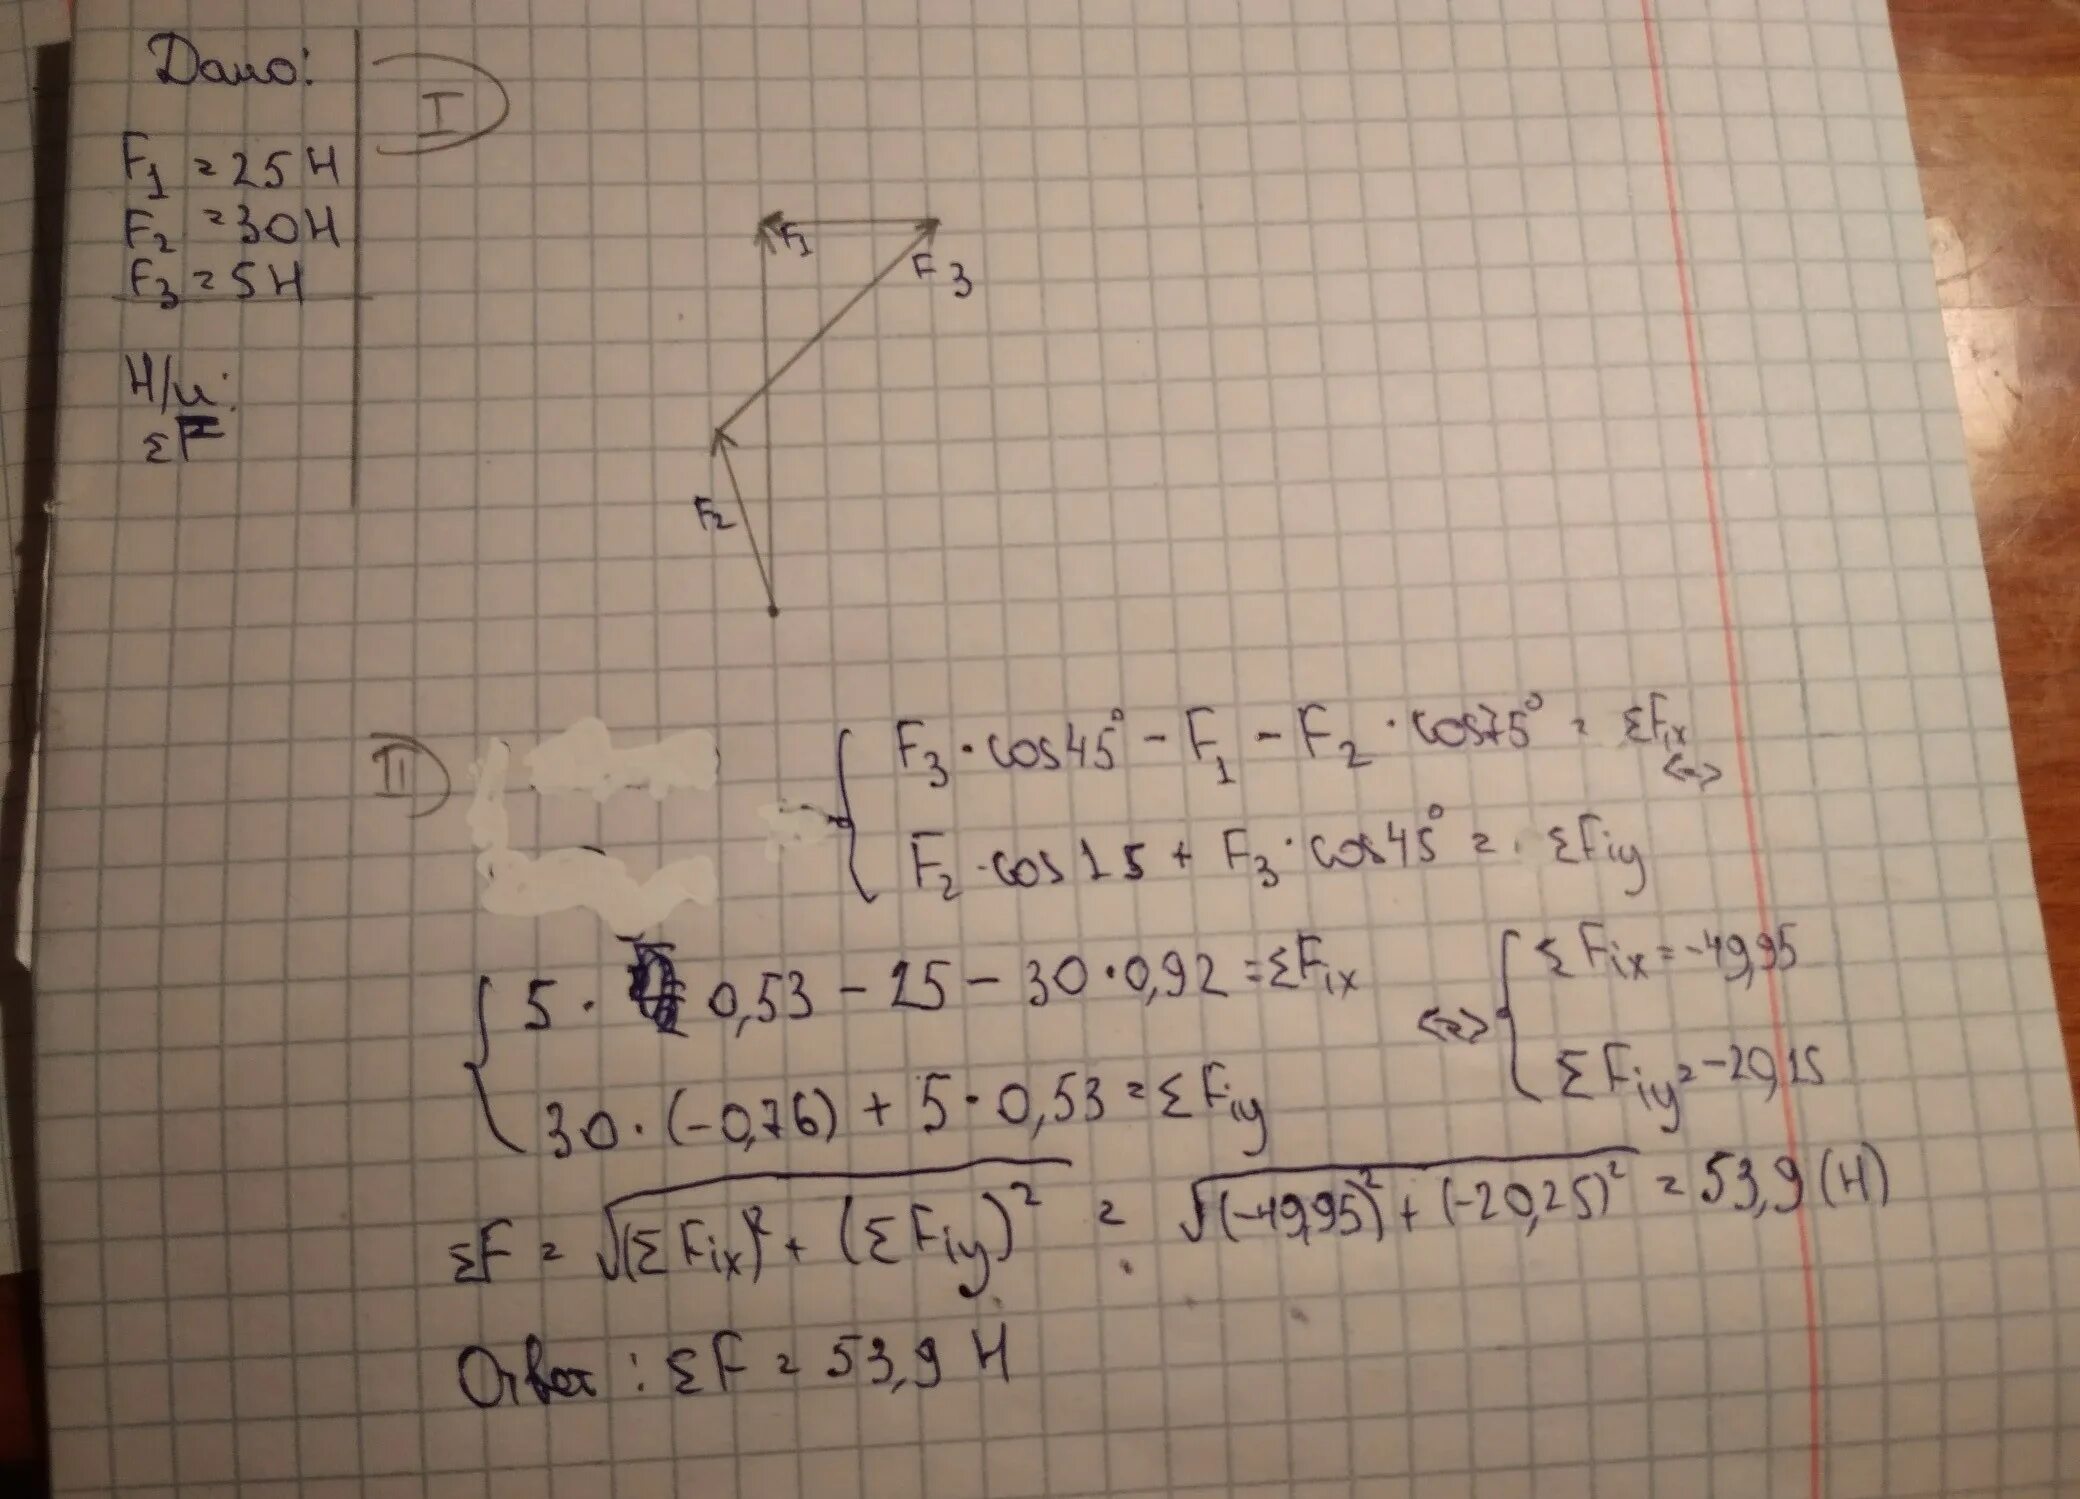 Дано:
I
F1 = 25 Н
F2 = 30 Н
F3 = 5 Н
Н/и:
ΣF
F1
F3
F2
II
F3 · cos45° - F1 - F2 · cos75° = ΣFix <=>
F2 · cos15 + F3 · cos45° = ΣFiy
5 · 0,53 - 25 - 30 · 0,92 = ΣFix
<=> ΣFix = -49,95
30 · (-0,76) + 5 · 0,53 = ΣFiy
ΣFiy = -20,15
ΣF = √(ΣFix)² + (ΣFiy)² = √(-49,95)² + (-20,25)² = 53,9 (Н)
Ответ: ΣF = 53,9 Н